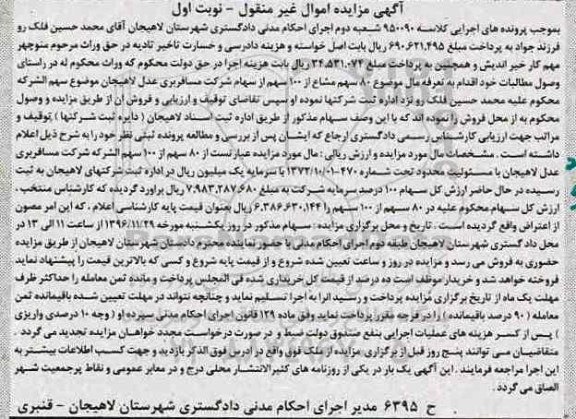 آگهی مزایده اموال غیر منقول - نوبت اول
بموجب پرونده های اجرایی کلاسه ۹۵۰۰۹۰ شعبه دوم اجرای احکام مدنی دادگستری شهرستان لاهیجان آقای محمد حسین فلک رو
فرزند جواد به پرداخت مبلغ ۶۹۰،۶۲۱،۴۹۵ ریال بابت اصل خواسته و هزینه دادرسی و خسارت تاخیر تادیه در حق وراث مرحوم منوچهر
مهم کار خیر اندیش و همچنین به پرداخت مبلغ ۳۴،۵۳۱،۰۷۴ ریال بابت هزینه اجرا در حق دولت محکوم که وراث محکوم له در راستای
وصول مطالبات خود اقدام به تعرفه مال موضوع ۸۰ سهم مشاع از ۱۰۰ سهم از سهام شرکت مسافربری عدل لاهیجان موضوع سهم الشرکه
محکوم علیه محمد حسین فلک رو نزد اداره ثبت شرکتها نموده او سپس تقاضای توقیف و ارزیابی و فروش آن از طریق مزایده و وصول
محکوم به از محل فروش را نموده اند که با این وصف سهام مذکور از طریق اداره ثبت اسناد لاهیجان ( دایره ثبت شرکتها ) ,توقیف و
مراتب جهت ارزیابی کارشناس رسمی دادگستری ارجاع که ایشان پس از بررسی و مطالعه پرونده ثبتی نظر خود را به شرح ذیل اعلام
داشته است . مشخصات مال مورد مزایده و ارزش ریالی : مال مورد مزایده عبارتست از ۸۰ سهم از ۱۰۰ سهم الشرکه شرکت مسافربری
عدل لاهیجان با مسئولیت محدود تحت شماره ۴۷۰-۱۳۷۳/۱۰/۰۱ با سرمایه یک میلیون ریال در اداره ثبت شرکتهای لاهیجان به ثبت
رسیده در حال حاضر ارزش کل سهام ۱۰۰ درصد سرمایه شرکت به مبلغ ۷،۹۸۳،۲۸۷،۶۸۰ ریال برآورد گردیده که کارشناس منتخب ،
ارزش کل سهام محکوم علیه در ۸۰ سهم از ۱۰۰ سهم را ۶،۳۸۶،۶۳۰،۱۴۴ ریال بعنوان قیمت پایه کارشناسی اعلام . که این امر مصون
از اعتراض واقع گردیده است . تاریخ و محل برگزاری مزایده : سهام مذکور در روز یکشنبه مورخه ۱۳۹۶/۱۱/۲۹ از ساعت ۱۱ الی ۱۳ در
محل دادگستری شهرستان لاهیجان طبقه دوم اجرای احکام مدنی با حضور نماینده محترم دادستان شهرستان لاهیجان از طریق مزایده
حضوری به فروش می رسد و مزایده در روز و ساعت تعیین شده شروع و از قیمت پایه شروع و کسی که بالاترین قیمت را پیشنهاد نماید
فروخته خواهد شد و خریدار موظف است ده درصد از قیمت کل خریداری شده فی المجلس پرداخت و مانده ثمن معامله را حداکثر ظرف
مهلت یک ماه از تاریخ برگزاری مزایده پرداخت و رسید آنرا به اجرا تسلیم نماید و چنانچه نتواند در مهلت تعیین شده باقیمانده ثمن
معامله ( ۹۰ درصد باقیمانده ) را در فرجه مقرر پرداخت نماید وفق ماده ۱۲۹ قانون اجرای احکام مدنی سپرده او ( وجه ۱۰ درصدی واریزی
) پس از کسر هزینه های عملیات اجرایی بنفع صندوق دولت ضبط و در صورت درخواست مجدد خواهان مزایده تجدید می گردد .
متقاضیان می توانند پنج روز قبل از برگزاری مزایده از ملک فوق واقع در آدرس فوق الذکر بازدید و جهت کسب اطلاعات بیشتر به
این اجرا مراجعه فرمایند . این آگهی یک بار در یکی از روزنامه های کثیرالانتشار محلی درج و در معابر عمومی و نقاط پرجمعیت شهر
الصاق می گردد .
ح ۶۳۹۵ مدیر اجرای احکام مدنی دادگستری شهرستان لاهیجان - قنبری